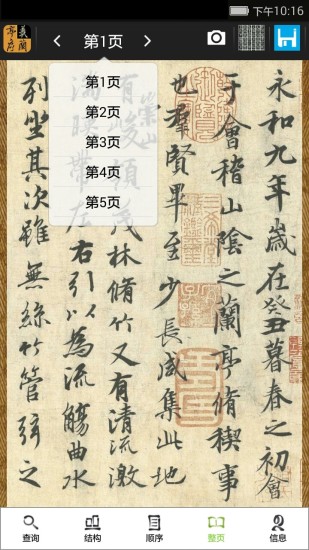 下午10:16
第1页
第1页
第2页
第3页
第4页
第5页
永和九年歲在癸丑暮春之初會
于會稽山陰之蘭亭脩稧事
也羣賢畢至少長咸集此地
有崇山峻領茂林脩竹又有清流激
湍映帶左右引以為流觴曲水
列坐其次雖無絲竹管弦之
查询
结构
顺序
整页
信息